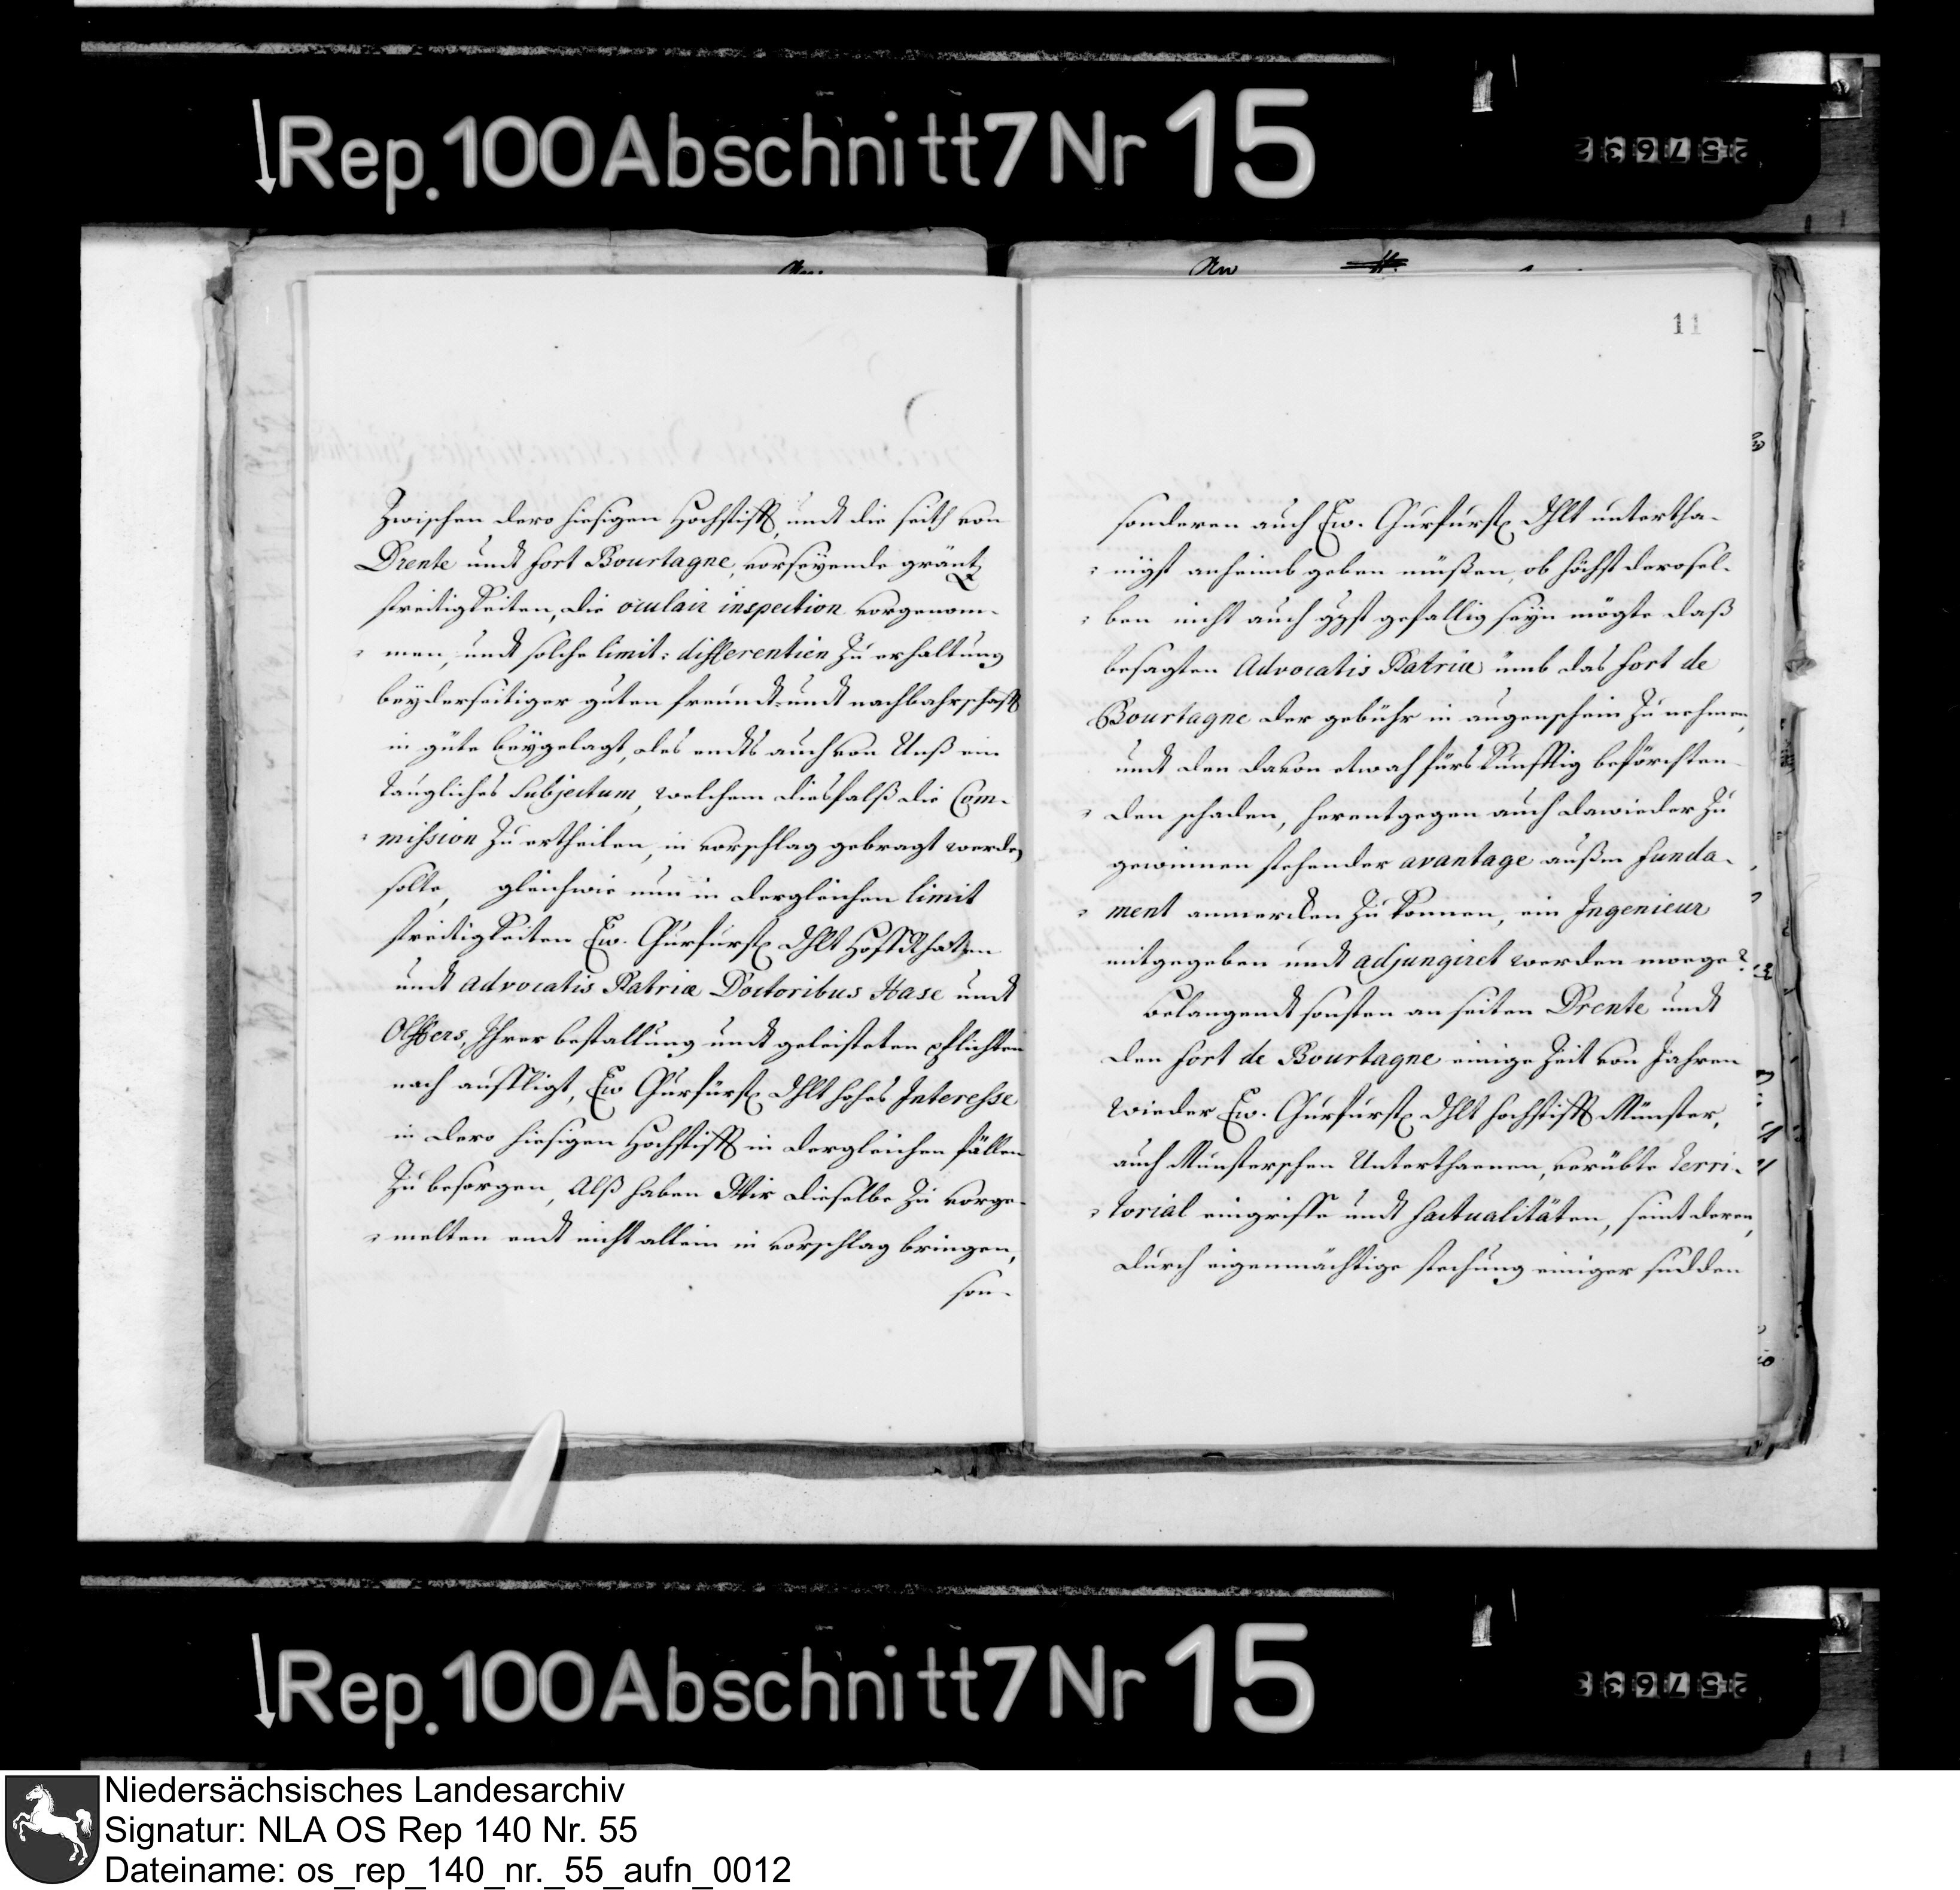 Rep. 100 Abschnitt 7 Nr 15
257632
11
Zwischen dero hiesigen Hochstifft, undt die seith von
Drente undt fort Bourtagne, vorseyende gräntz
streitigkeiten, die oculair inspection vorgenom-
men, undt solche limit: differentien zu erhaltung
beyderseitiger guten freundt- undt nachbahrschafft
in güte beygelagt, des endts auch von Unß ein
taugliches Subjectum, welchem diesfalß die Com-
mission zu ertheilen, in vorschlag gebragt werden
solte, gleichwie nun in dergleichen limit
streitigkeiten Ew. Churfürstl Dhlt Hoff Räthen
undt Advocatis Patriæ Doctoribus Hase undt
Olffers, Ihrer bestallung undt geleisteten pflichten
nach aufligt, Ew Churfürstl Dhlt hohes Interesse
in dero hiesigen Hochstifft in dergleichen fällen
zu besorgen, Alß haben Wir dieselbe zu vorge-
melten endt nicht allein in vorschlag bringen,
son-
sonderen auch Ew. Churfürstl Dhlt untertha-
nigst anheimb geben müßen, ob höchst derosel-
ben nicht auch ggst gefällig seyn mögte daß
besagten Advocatis Patriæ ümb das fort de
Bourtagne der gebühr in augenschein zu nehmen,
undt den davon etwah fürs künfftig beförchten-
den schaden, herentgegen auch dawieder zu
gewinnen stehender avantage außm funda-
ment anmercken zu können, ein Ingenieur
mitgegeben undt adjungiret werden moege?
Belangendt sonsten an seiten Drente undt
den fort de Bourtagne einige Zeit von Jahren
wieder Ew. Churfürstl Dhlt hochstifft Münster,
auch Munsterschen Unterthaenen, verübte Terri-
torial eingriffe undt factualitäten, seint deren,
durch eigenmächtige stechung einiger sudden
Rep. 100 Abschnitt 7 Nr 15
257633
Niedersächsisches Landesarchiv
Signatur: NLA OS Rep 140 Nr. 55
Dateiname: os_rep_140_nr._55_aufn_0012